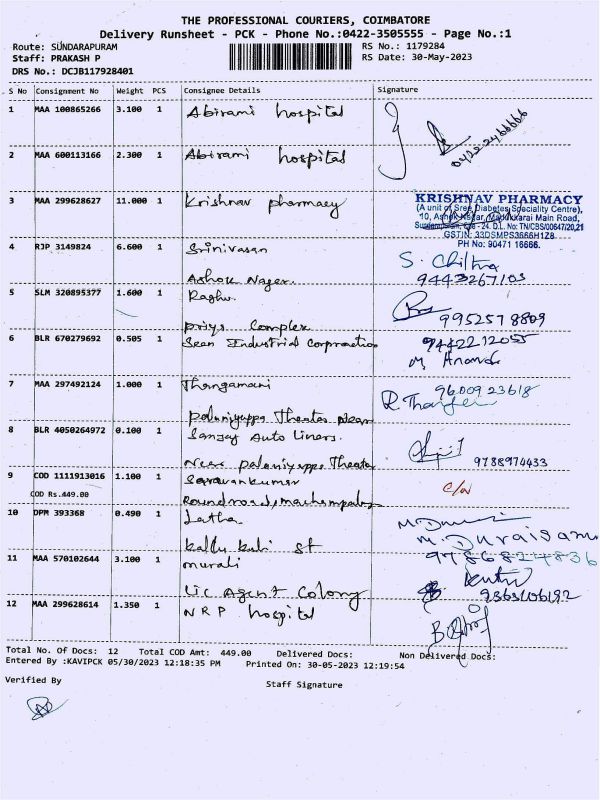 THE PROFESSIONAL COURIERS, COIMBATORE
Delivery Runsheet - PCK - Phone No.:0422-3505555 - Page No.:1
Route: SUNDARAPURAM RS No.: 1179284
Staff: PRAKASH P RS Date: 30-May-2023
DRS No.: DCJB117928401
S No Consignment No Weight PCS Consignee Details Signature
1 MAA 100865266 3.100 1 Abirami hospital
2 MAA 600113166 2.300 1 Abirami hospital
3 MAA 299628627 11.000 1 Krishnav pharmacy
KRISHNAV PHARMACY
(A unit of Sree Diabetes Speciality Centre),
10, Ashok Nagar, Madukkarai Main Road,
GSTIN: 33DSMPS3666H1Z8
PH No: 90471 16666.
4 RJP 3149824 6.600 1 Srinivasan
S. Chitra
Ashok Nager.
9443267103
5 SLM 320895377 1.600 1 Raghu.
Priya Complex
9952578809
6 BLR 670279692 0.505 1 Sean Industrial Corproaction
9442212055
M Anand
7 MAA 297492124 1.000 1 Thangamani
9600923618
Palaniyappa Theater Near
8 BLR 4050264972 0.100 1 Sanjay Auto Liners.
Near Palaniyappa Theater
9788974433
9 COD 1111913016 1.100 1 Saravankumar
COD Rs.449.00
Roundroad,
10 DPM 393368 0.490 1 Latha
M. Duraisamy
kali st
9786824836
11 MAA 570102644 3.100 1 murali
Lic Agent Colony
12 MAA 299628614 1.350 1 NRP hospital
Total No. Of Docs: 12 Total COD Amt: 449.00 Delivered Docs: Non Delivered Docs:
Entered By :KAVIPCK 05/30/2023 12:18:35 PM Printed On: 30-05-2023 12:19:54
Verified By Staff Signature